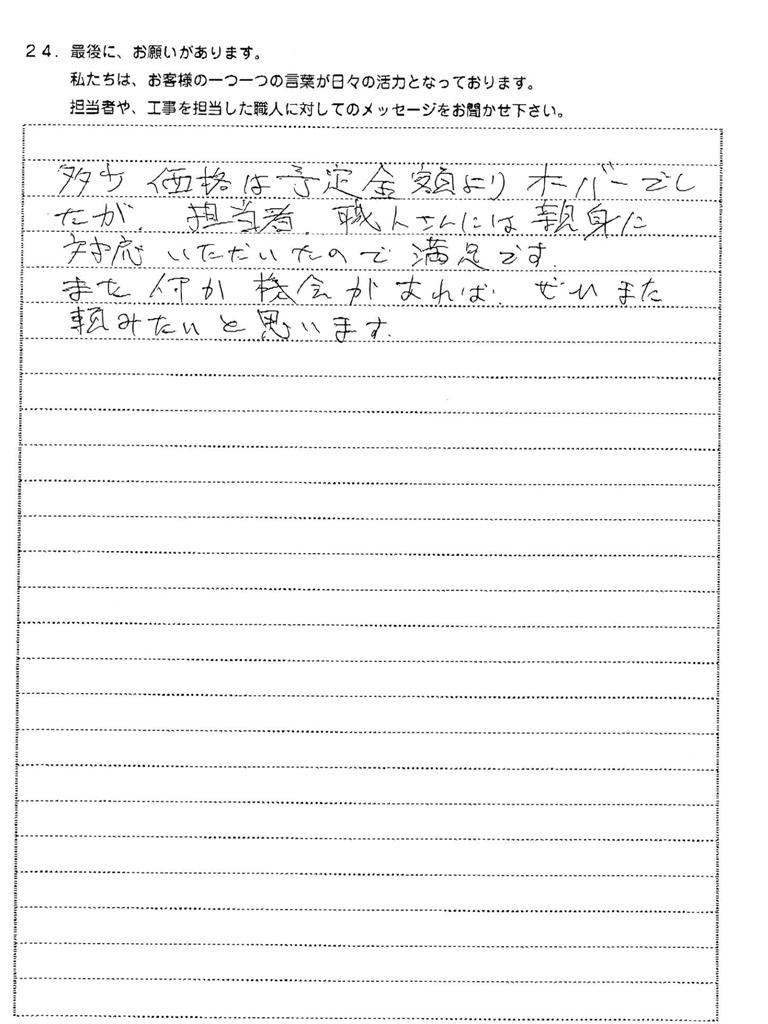 24. 最後に、お願いがあります。
私たちは、お客様の一つ一つの言葉が日々の活力となっております。
担当者や、工事を担当した職人に対してのメッセージをお聞かせ下さい。
多少 価格は予定金額より オーバーでし
たが、担当者、職人さんには親身に
対応いただいたので満足です。
また何か機会があれば、ぜひまた
頼みたいと思います。